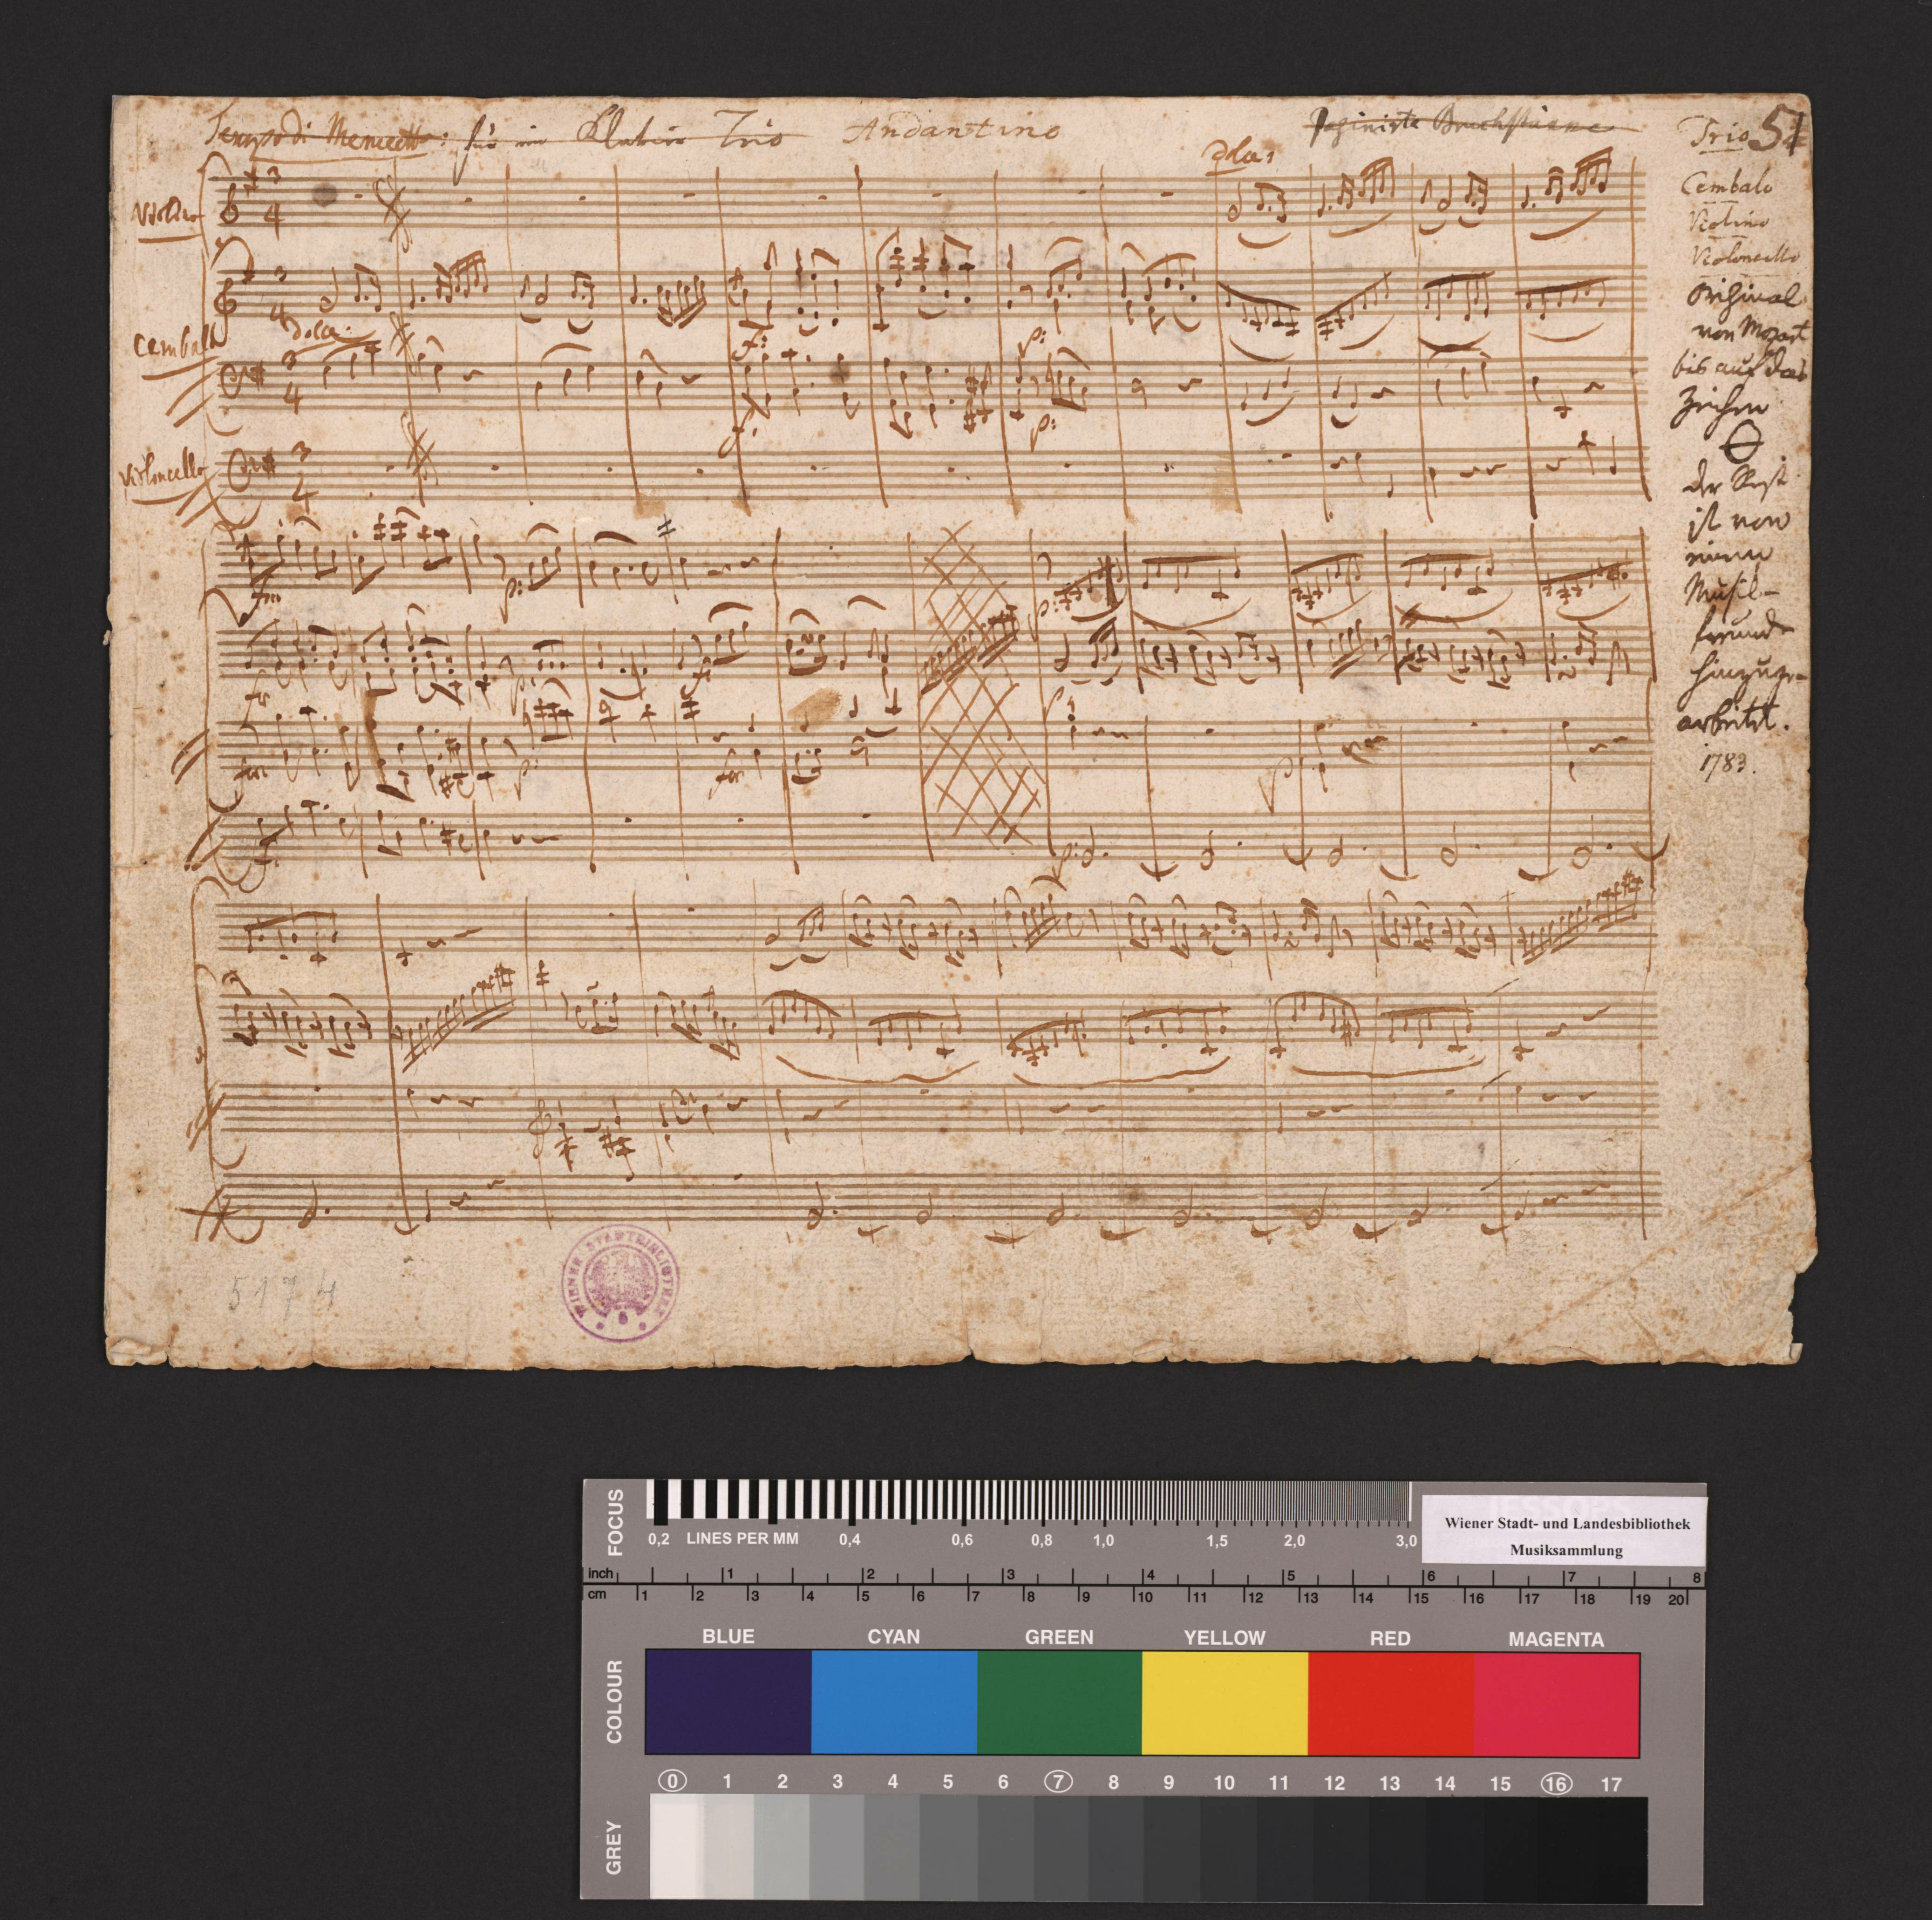 Tempo di Menuetto: für ein Klavier Trio Andantino
Paginirte Bruchstücke
Trio 51
dolce
Violino
Cembalo
Violoncello
3
4
3
4
dolce
3
4
3
4
f:
p:
f:
p:
Cembalo
Violino
Violoncello
Original
von Mozart
bis auf das
Zeichen
der Rest
ist von
einem
Musik-
freund
hinzuge-
arbeitet.
1783.
for
p:
p:
for
p:
for
for
p
f
p:
5174
WIENER STADTBIBLIOTHEK
FOCUS
0,2 LINES PER MM 0,4 0,6 0,8 1,0 1,5 2,0 3,0
Wiener Stadt- und Landesbibliothek
Musiksammlung
inch 1 2 3 4 5 6 7 8
cm 1 2 3 4 5 6 7 8 9 10 11 12 13 14 15 16 17 18 19 20
COLOUR
BLUE CYAN GREEN YELLOW RED MAGENTA
0 1 2 3 4 5 6 7 8 9 10 11 12 13 14 15 16 17
GREY